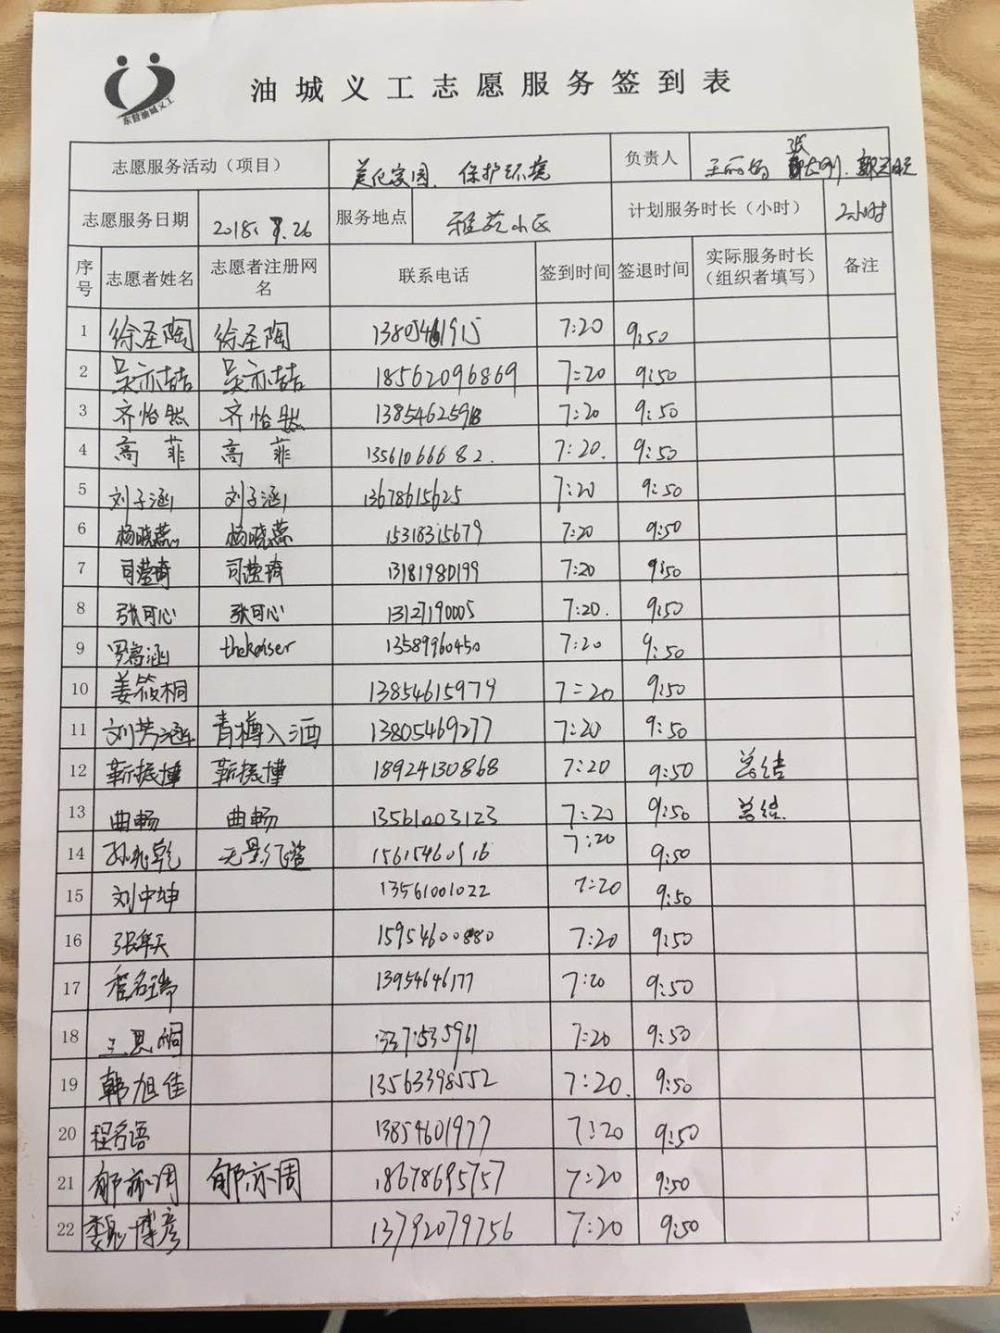 东营油城义工
油城义工志愿服务签到表
志愿服务活动（项目） 美化家园、保护环境 负责人
志愿服务日期 2018. 服务地点 雅苑小区 计划服务时长（小时） 2小时
序号 志愿者姓名 志愿者注册网名 联系电话 签到时间 签退时间 实际服务时长（组织者填写） 备注
1 徐圣陶 徐圣陶 7:20 9:50
2 吴亦喆 吴亦喆 18562096869 7:20 9:50
3 齐怡然 齐怡然 7:20 9:50
4 高菲 高菲 13561066682. 7:20. 9:50
5 刘子涵 刘子涵 13678615625 7:20 9:50
6 杨晓燕 杨晓燕 15318315679 7:20 9:50
7 司莹琦 司莹琦 13181980199 7:20 9:50
8 张可心 张可心 13127190005 7:20. 9:50
9 罗富涵 thekaiser 13589960450 7:20 9:50
10 姜筱桐 13854615979 7:20 9:50
11 青樽入酒 13805469277 7:20 9:50
12 靳振博 靳振博 18924130868 7:20 9:50 总结
13 曲畅 曲畅 13561003123 7:20 9:50 总结
14 孙兆乾 15615460916 7:20 9:50
15 刘中坤 13561001022 7:20 9:50
16 15954600880 7:20 9:50
17 程名瑞 13954646177 7:20 9:50
18 王思桐 7:20 9:50
19 韩旭佳 13563398552 7:20. 9:50
20 程名语 13854601977 7:20 9:50
21 郇亦周 郇亦周 18678695757 7:20 9:50
22 13792079756 7:20 9:50